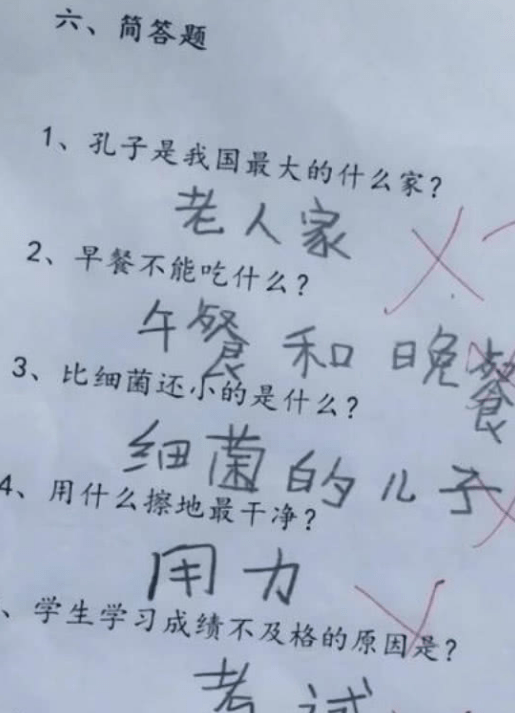 六、简答题
1、孔子是我国最大的什么家？
老人家
2、早餐不能吃什么？
午餐 和 晚餐
3、比细菌还小的是什么？
细菌的儿子
4、用什么擦地最干净？
用力
、学生学习成绩不及格的原因是？
考试